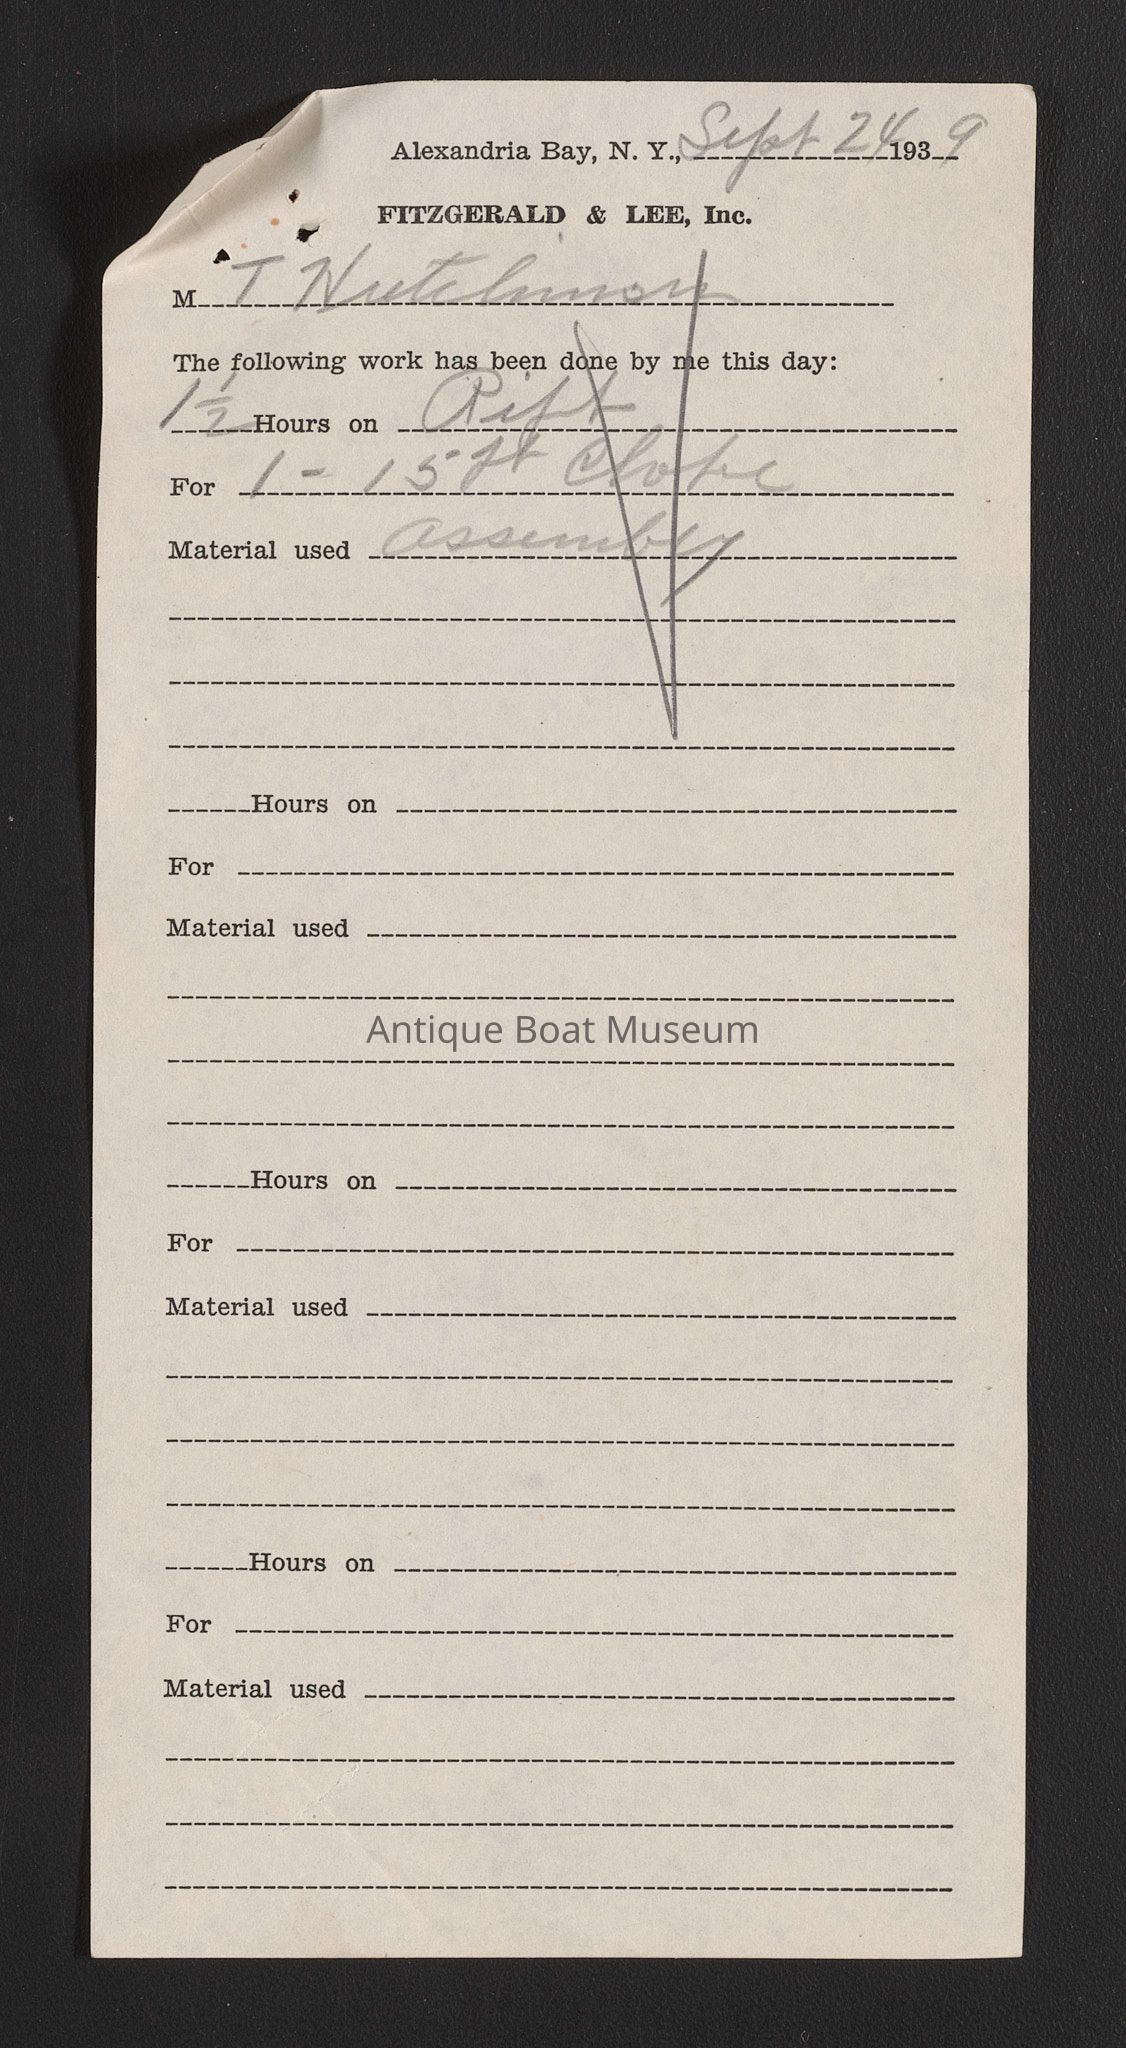 Alexandria Bay, N. Y., Sept 24 1939
FITZGERALD & LEE, Inc.
M T Hutchinson
The following work has been done by me this day:
1 1/2 Hours on Rift
For 1 - 15 ft
Material used assembly
Hours on
For
Material used
Antique Boat Museum
Hours on
For
Material used
Hours on
For
Material used